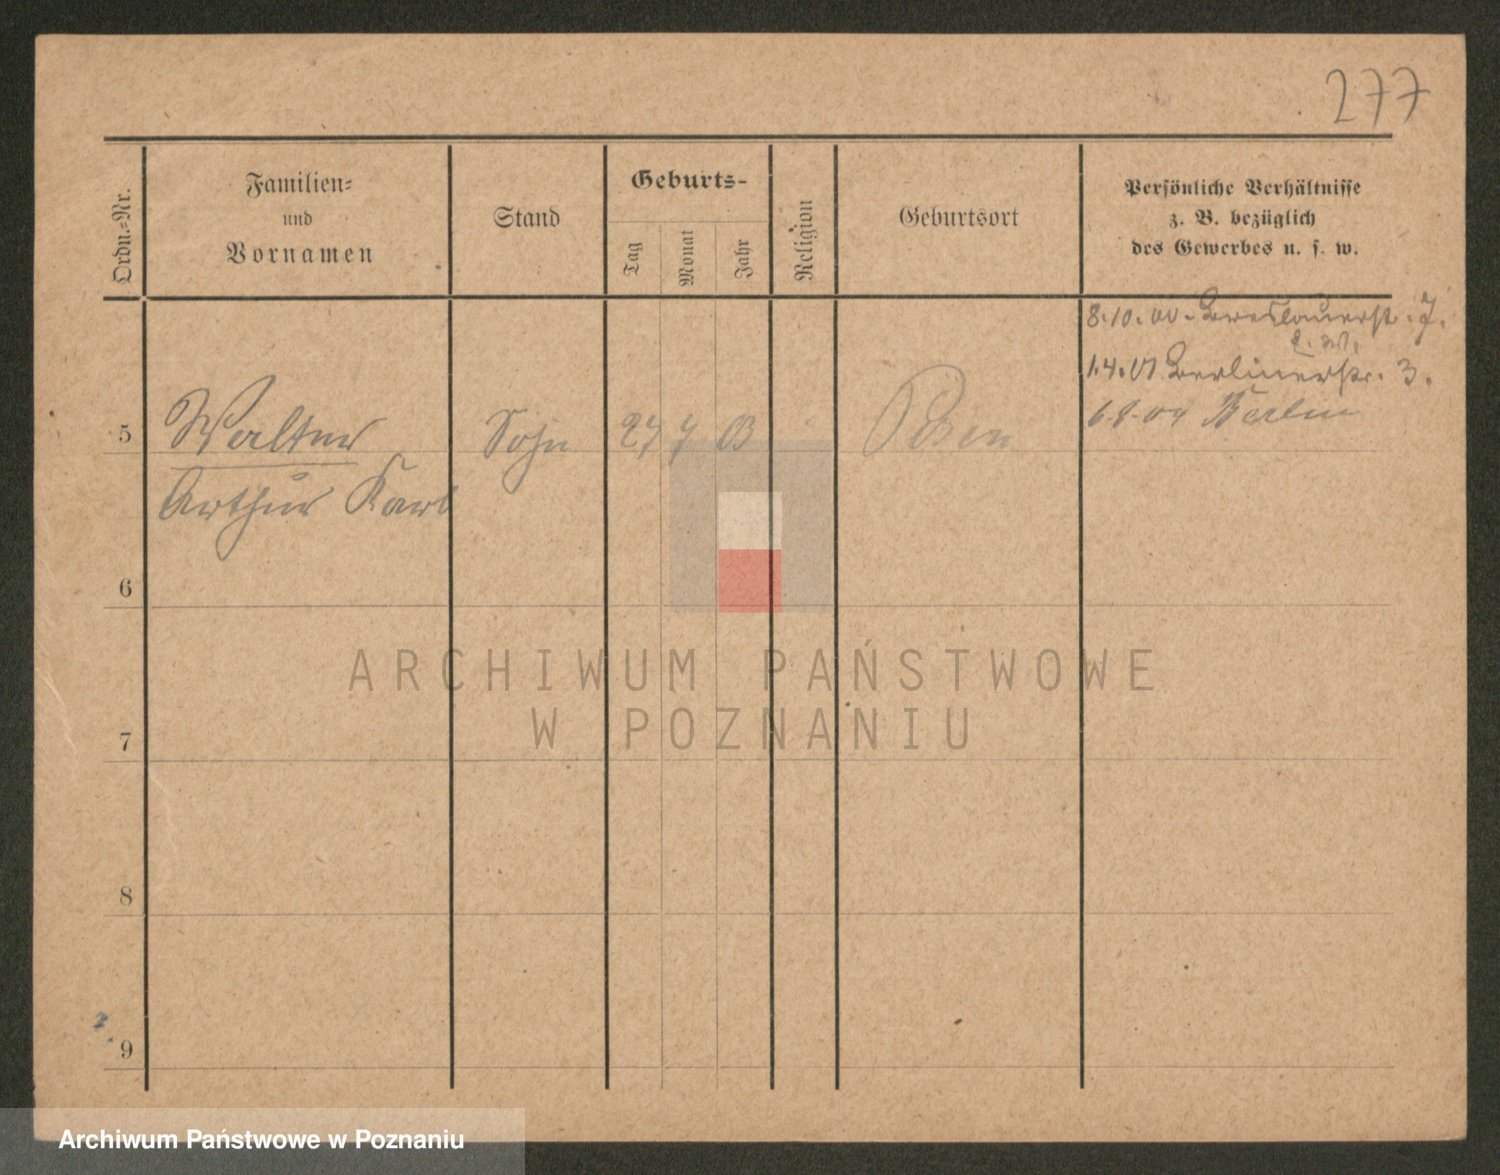 277
Ordn.-Nr.
Familien-
und
Vornamen
Stand
Geburts-
Tag
Monat
Jahr
Religion
Geburtsort
Persönliche Verhältnisse
z. B. bezüglich
des Gewerbes u. s. w.
8.10.00. Breslauerstr. 7.
1.4.01 Berlinerstr. 3.
5
Walter
Sohn
27 7 03
"
Posen
6.8.04 Berlin
Arthur Karl
6
7
8
9
ARCHIWUM PAŃSTWOWE
W POZNANIU
Archiwum Państwowe w Poznaniu